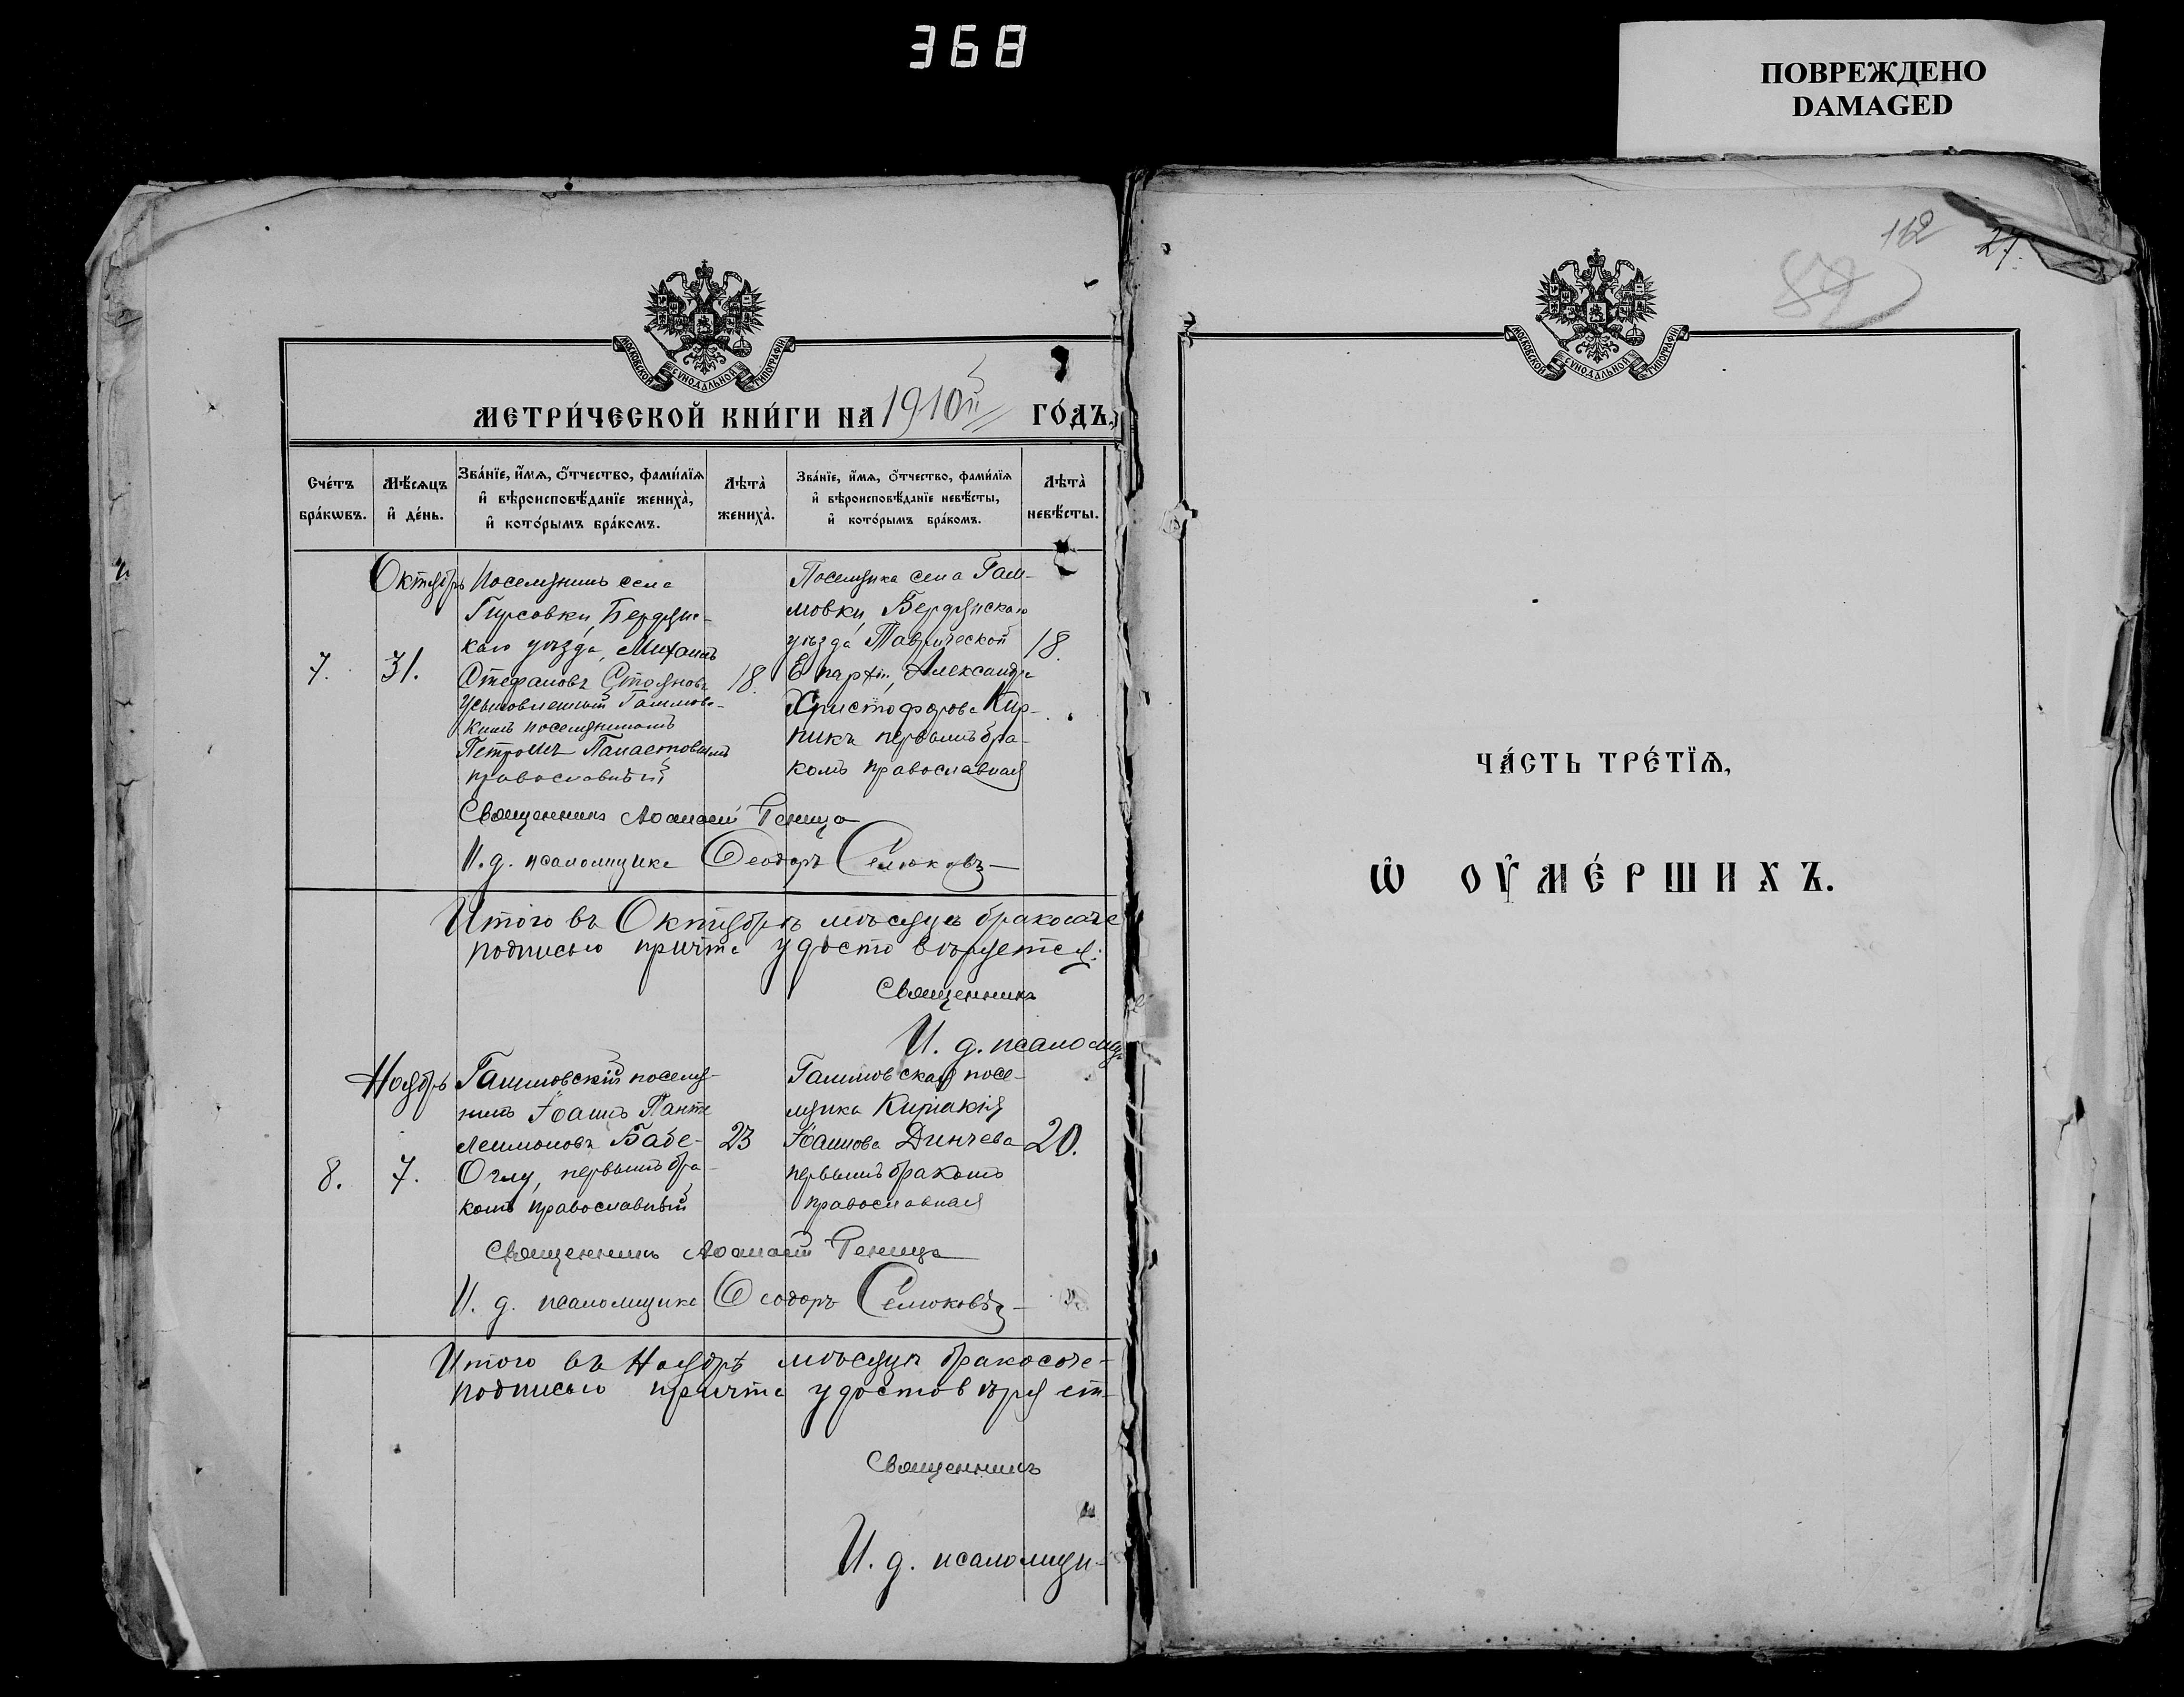 368
ПОВРЕЖДЕНО
DAMAGED
МОСКОВСКОЙ СѴНОДАЛЬНОЙ ТИПОГРАФІИ
МЕТРИ́ЧЕСКОЙ КНИ́ГИ НА 1910й ГО́ДЪ,
Сче́тъ бра́кѡвъ.
Мѣ́сяцъ и҆ де́нь.
Зва́нїе, и҆́мѧ, ѻ҆́тчество, фами́лїѧ
и҆ вѣроисповѣ́данїе жениха̀,
и҆ кото́рымъ бра́комъ.
Лѣта̀ жениха̀.
Зва́нїе, и҆́мѧ, ѻ҆́тчество, фами́лїѧ
и҆ вѣроисповѣ́данїе невѣ́сты,
и҆ кото́рымъ бра́комъ.
Лѣта̀ невѣ́сты.
Октябрь
7.
31.
Поселянинъ села
Гирсовки, Бердянс-
каго уѣзда, Михаилъ
Стефановъ Стояновъ
Усыновленный
кимъ поселяниномъ
Петромъ
православный
18.
Поселянка села Гам-
мовки, Бердянскаго
уѣзда Таврической
Епархіи, Александра
Христофорова Кир-
пикъ первымъ бра-
комъ православная
18.
Священникъ Аѳанасій
И. д. псаломщика Ѳеодоръ Селюковъ
Итого въ Октябрѣ мѣсяцѣ бракосоче
подписью причта удостовѣряется:
Священникъ
И. д. псаломщ
Ноябрь
8.
7.
поселя-
нинъ Іоаннъ Панте
леимоновъ Бабе-
Оглу, первымъ бра-
комъ православный
23
посе-
лянка Киріакія
Іоаннова Динчева
первымъ бракомъ
православная
20.
Священникъ Аѳанасій
И. д. псаломщика Ѳеодоръ Селюковъ
Итого въ Ноябрѣ мѣсяцѣ бракосоче-
подписью причта удостовѣряет-
Священникъ
И. д. псаломщи-
112
27.
МОСКОВСКОЙ СѴНОДАЛЬНОЙ ТИПОГРАФІИ
ЧА́СТЬ ТРЕ́ТЇѦ,
Ѡ҆ ОУ҆МЕ́РШИХЪ.